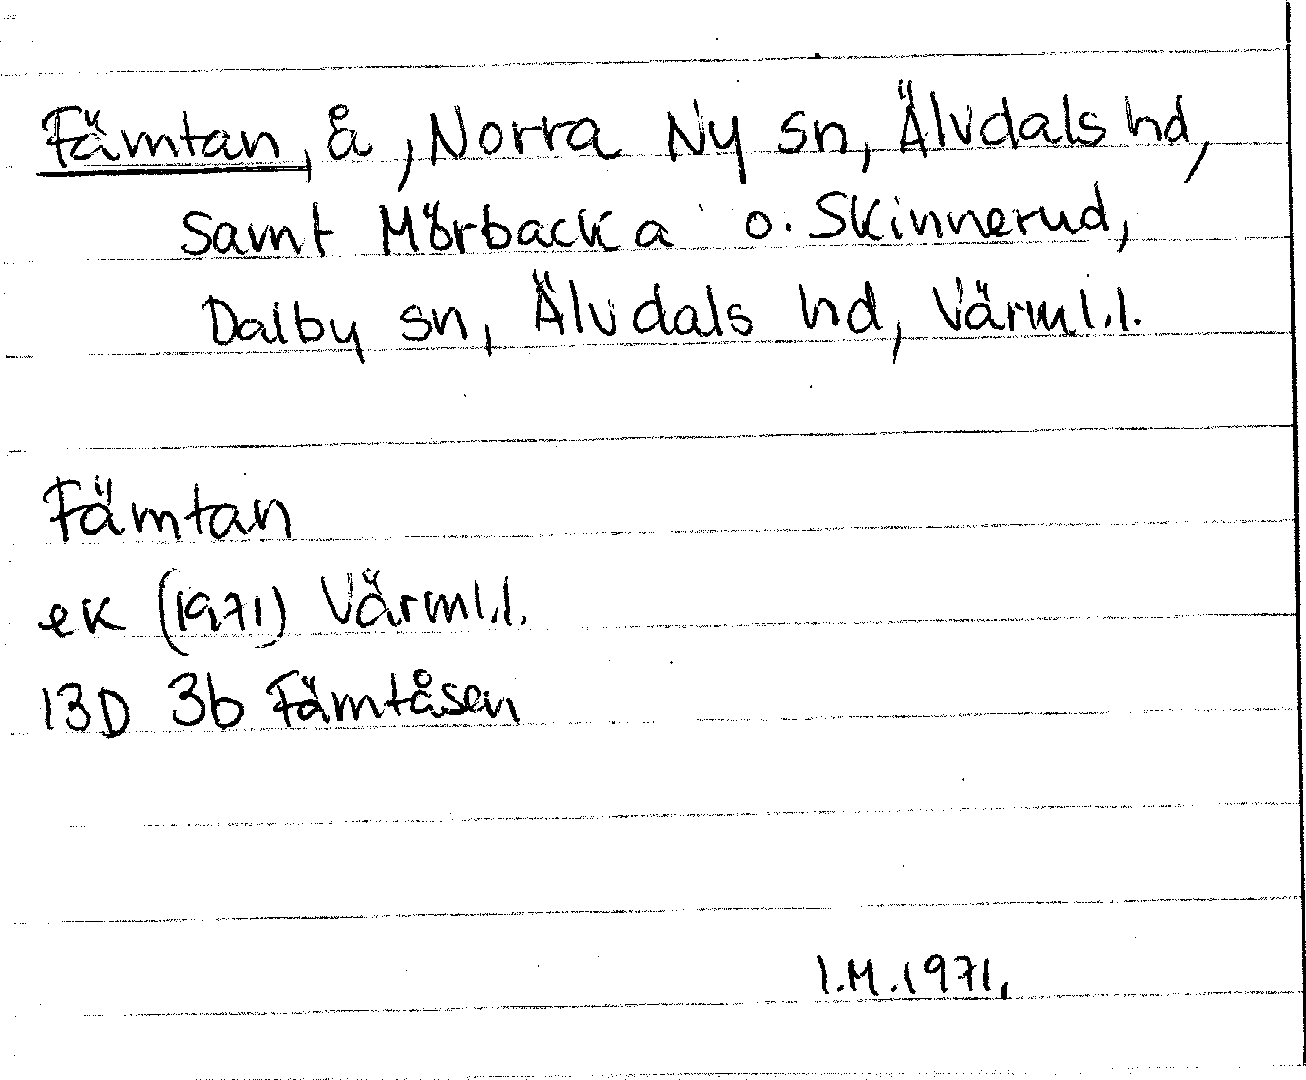 Fämtan, å, Norra Ny sn, Älvdals hd,
samt Mörbacka o. Skinnerud,
Dalby sn, Älvdals hd, Värml.l.
Fämtan
ek (1971) Värml.l.
13D 3b Fämtåsen
I.M.1971.